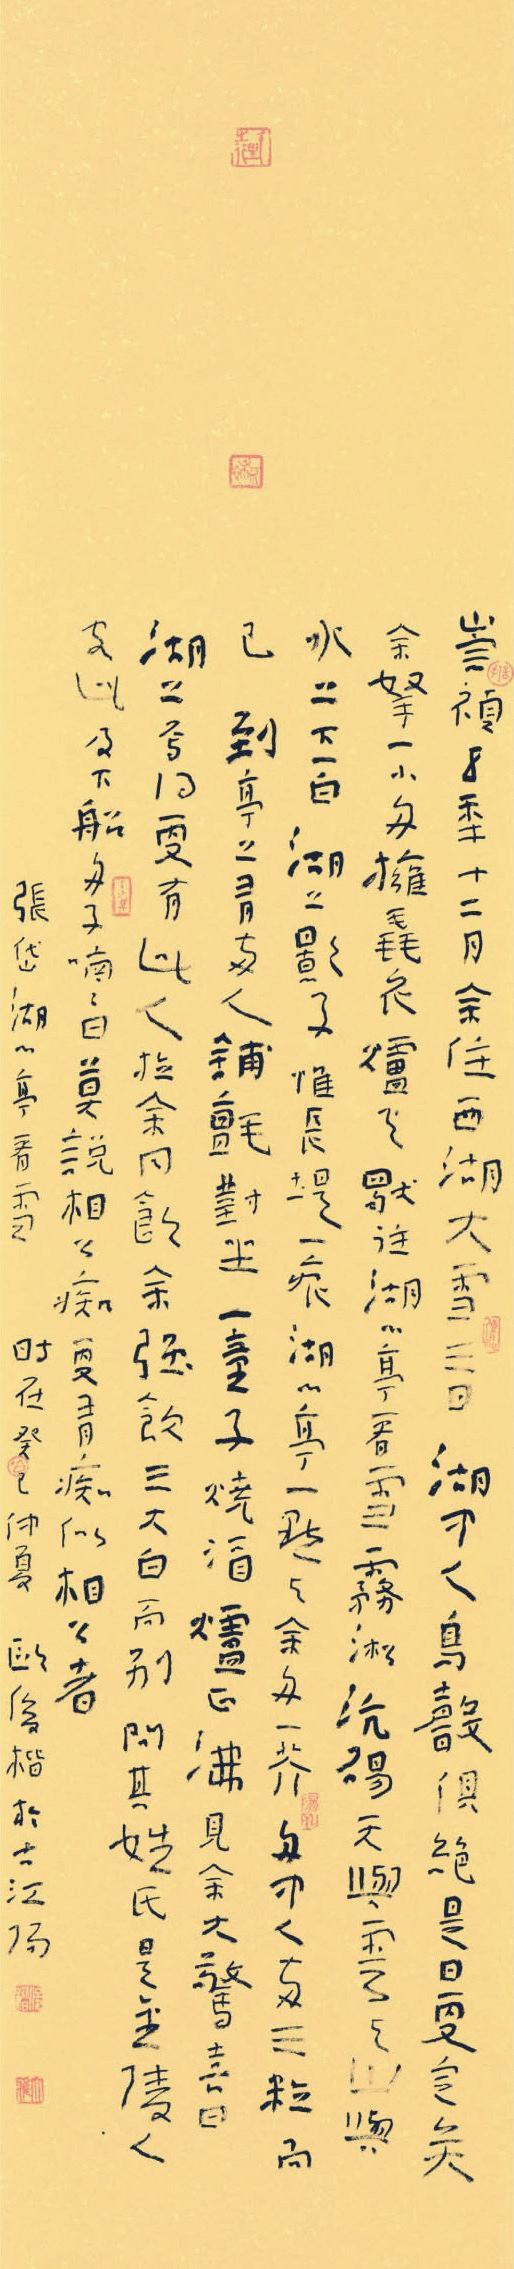 崇禎五年十二月余住西湖大雪三日湖中人鳥聲俱絕是日更定矣
余拏一小舟擁毳衣爐火獨往湖心亭看雪霧淞沆碭天與雲与山與
水上下一白湖上影子惟長堤一痕湖心亭一點与余舟一芥舟中人兩三粒而
已到亭上有兩人鋪氈對坐一童子燒酒爐正沸見余大驚喜曰
湖上焉得更有此人拉余同飲余強飲三大白而別問其姓氏是金陵人
客此及下船舟子喃〻曰莫說相公痴更有痴似相公者
張岱湖心亭看雪 時在癸巳仲夏 歐俊楷於古江陽